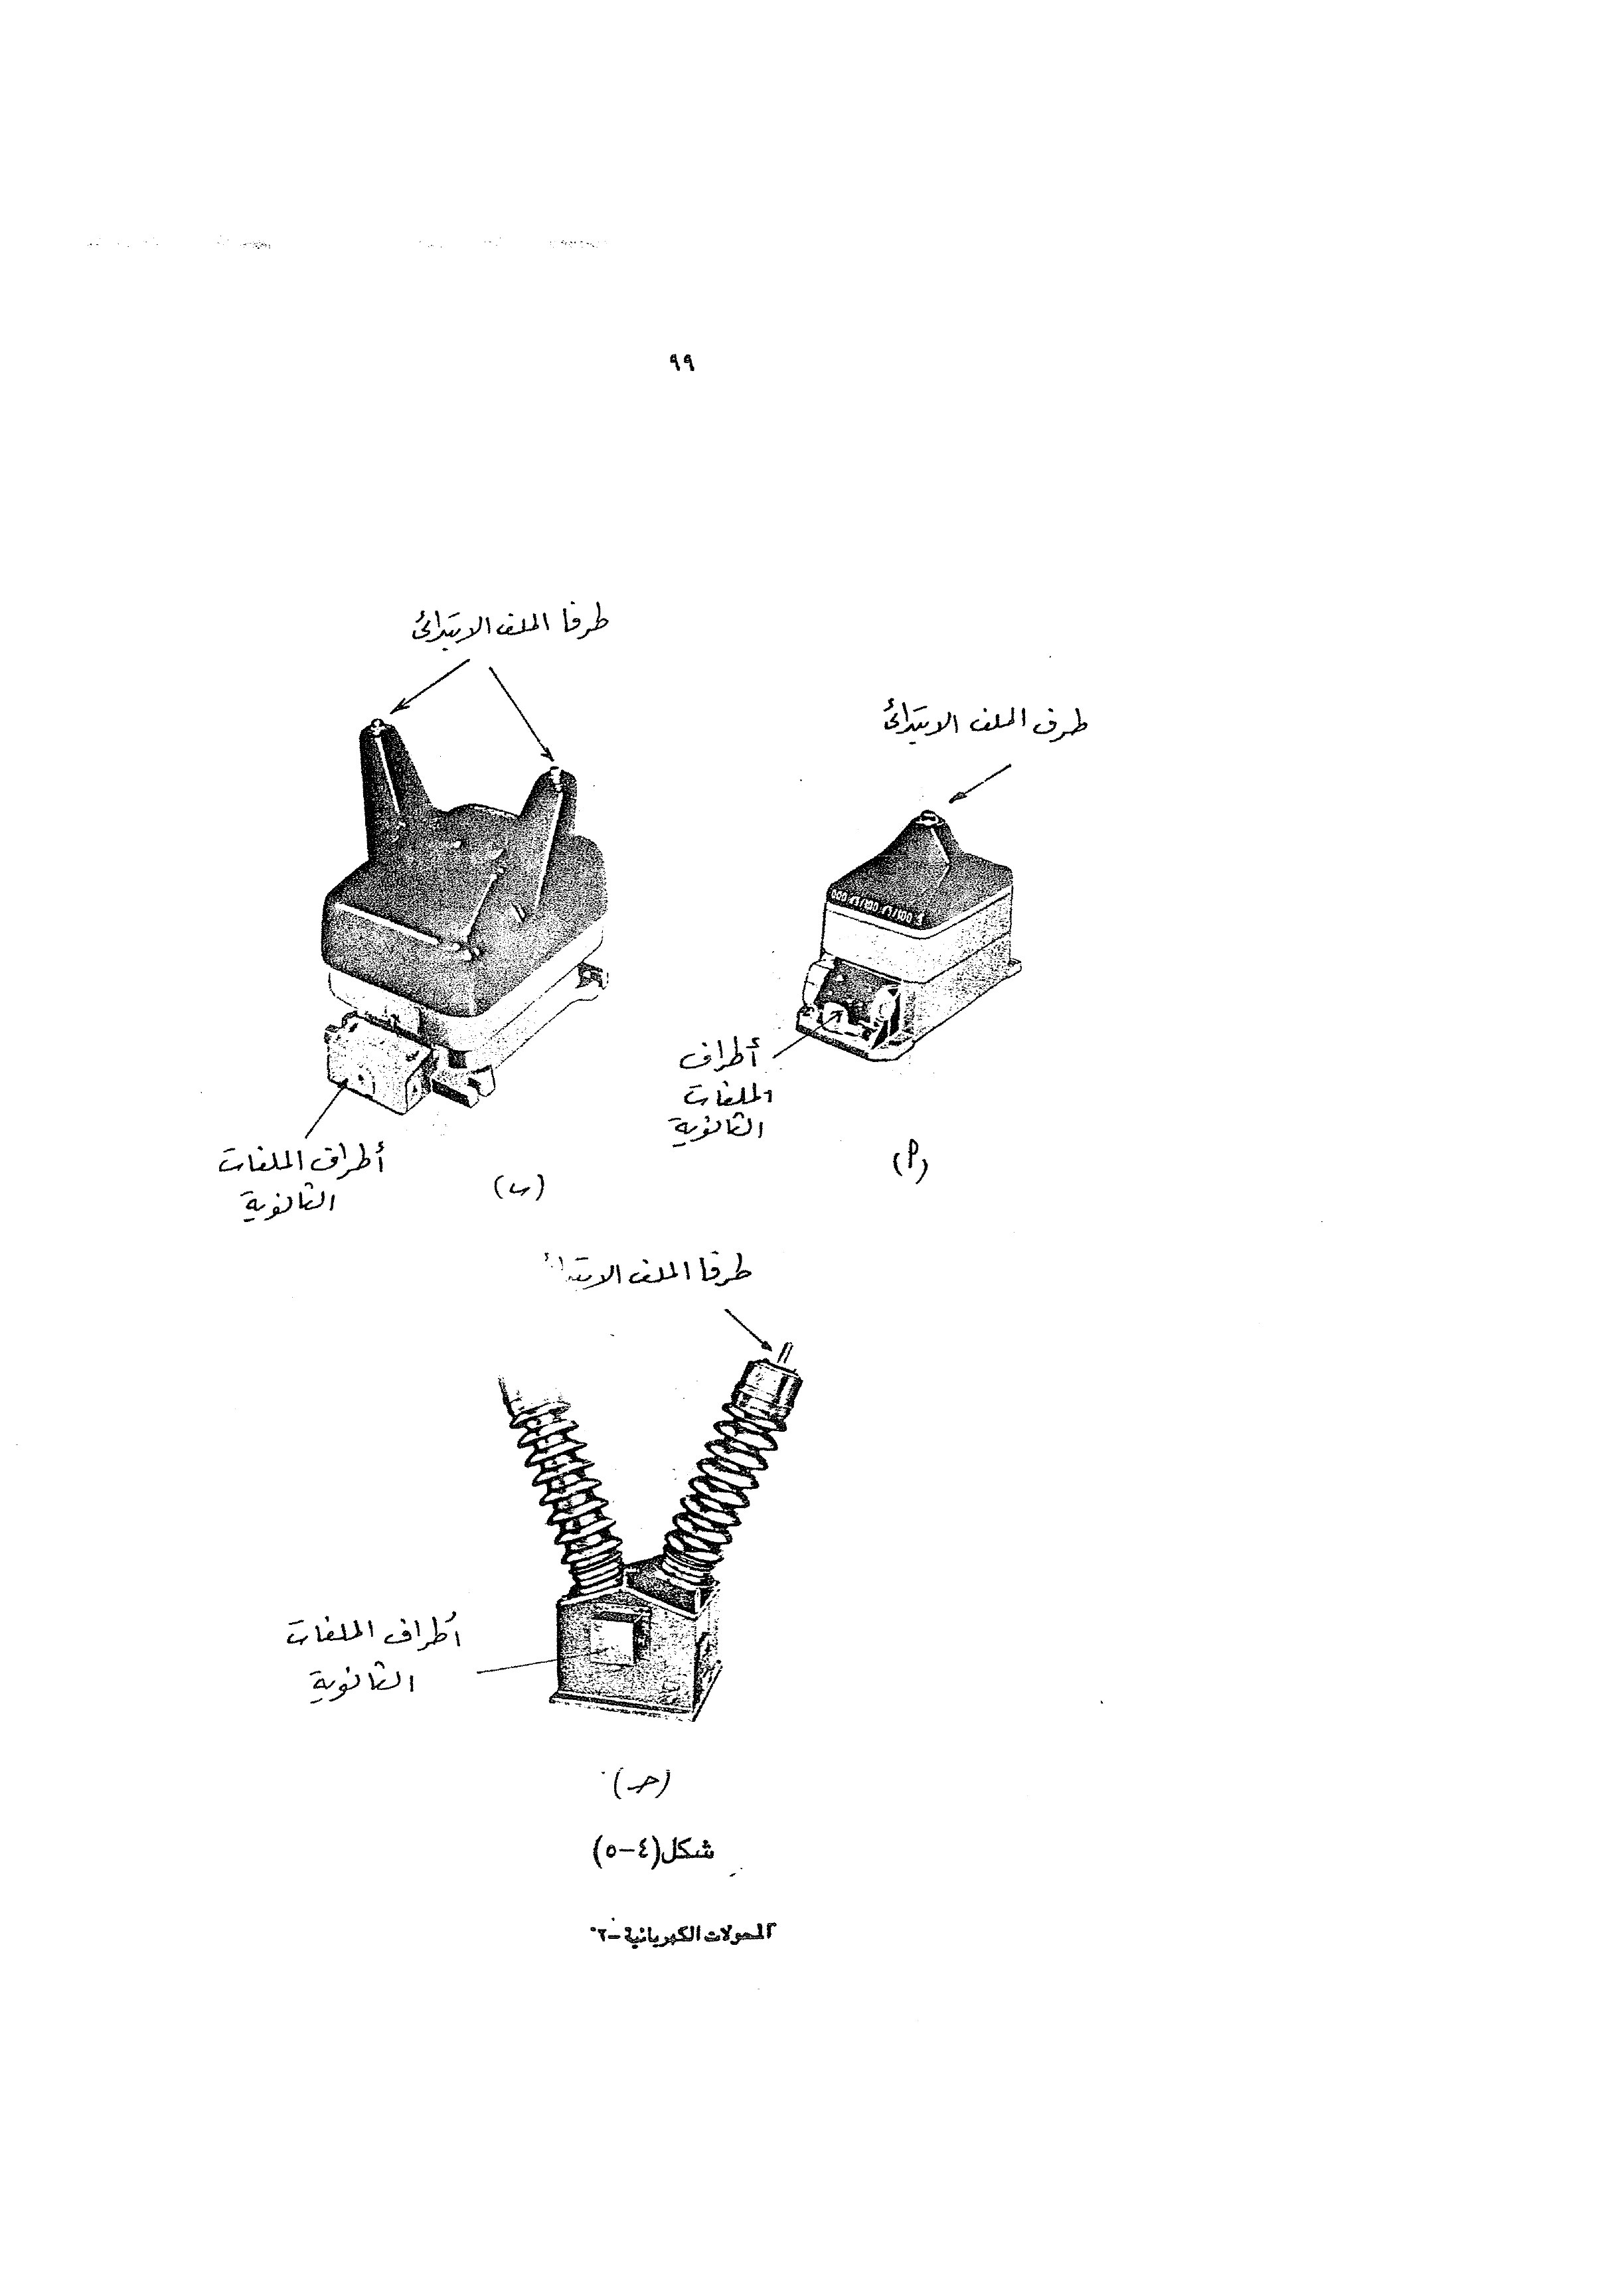 ٩٩
طرفا الملف الابتدائى
طرف الملف الابتدائى
أطراف
الملفات
الثانوية
(أ)
أطراف الملفات
الثانوية
(ب)
طرفا الملف
أطراف الملفات
الثانوية
(حـ)
شكل(٤-٥)
المحولات الكهربائية-٢